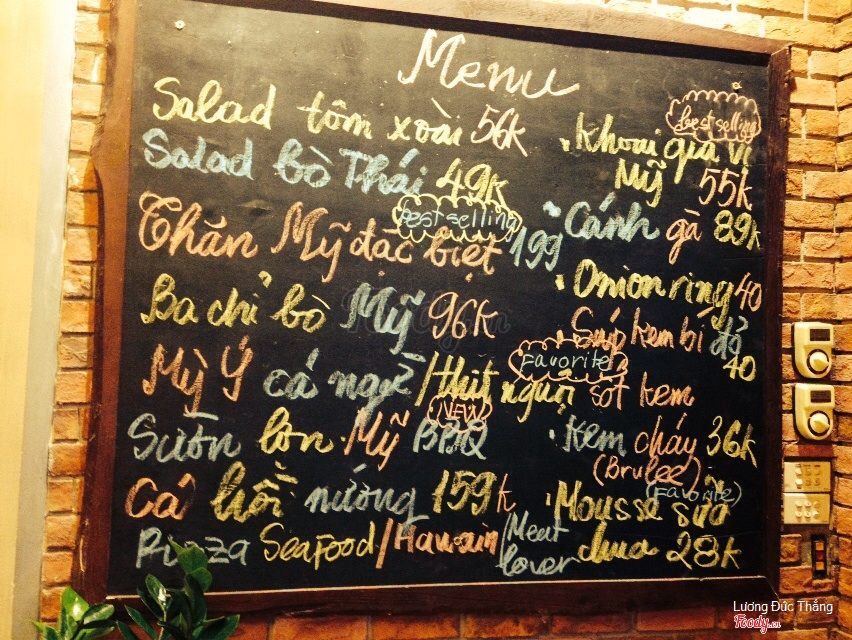 Menu
Salad tôm xoài 56k
Salad bò Thái 49k
best selling
Thăn Mỹ đặc biệt 199
Ba chỉ bò Mỹ 96k
Mỳ Ý cá ngừ/Thịt nguội sốt kem
Favorite
NEW
Sườn lợn Mỹ BBQ
Cá hồi nướng 159k
Pizza Seafood/Hawain/Meat lover
best selling
Khoai gia vị
Mỹ 55k
Cánh gà 89k
Onion ring 40
Súp kem bí đỏ
40
Kem cháy 36k
(Brulee)
(Favorite)
Mousse sữa
chua 28k
Lương Đức Thắng
Foody.vn